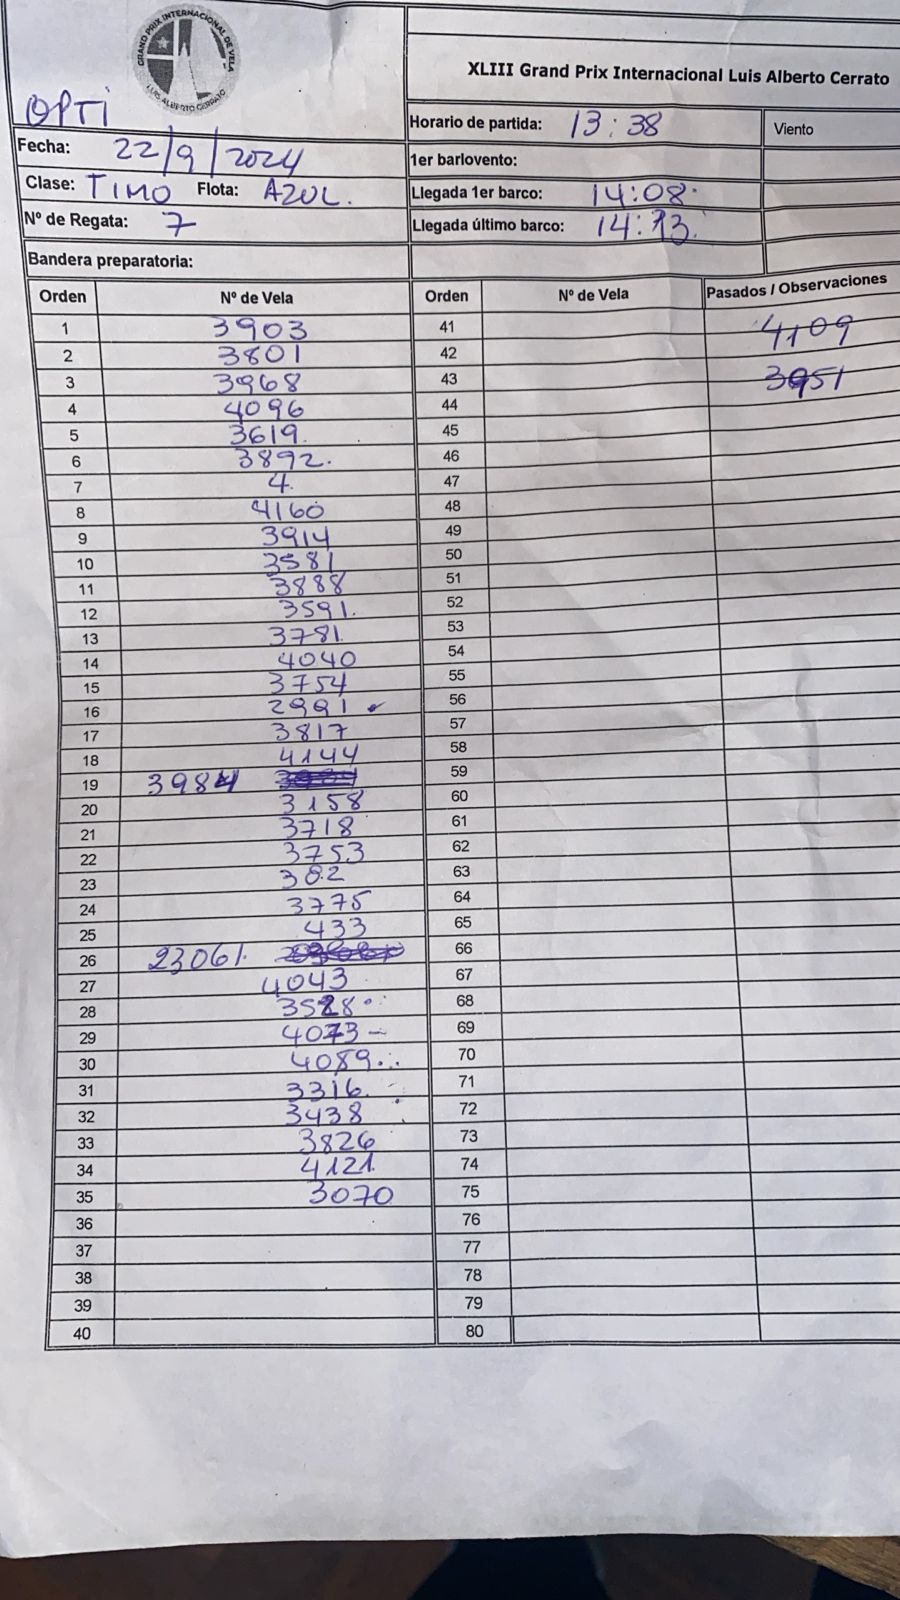 GRAND PRIX INTERNACIONAL DE VELA
LUIS ALBERTO CERRATO
XLIII Grand Prix Internacional Luis Alberto Cerrato
OPTI
Horario de partida: 13:38
Viento
Fecha: 22/9/2024
1er barlovento:
Clase: TIMO Flota: AZUL.
Llegada 1er barco: 14:08
Nº de Regata: 7
Llegada último barco: 14:13.
Bandera preparatoria:
Orden Nº de Vela Orden Nº de Vela Pasados / Observaciones
1 3903 41 4109
2 3801 42
3 3968 43 3951
4 4096 44
5 3619. 45
6 3892. 46
7 4. 47
8 4160 48
9 3914 49
10 3581 50
11 3888 51
12 3591. 52
13 3781. 53
14 4040 54
15 3754 55
16 2991 56
17 3817 57
18 4144 58
19 3984 59
20 3158 60
21 3718 61
22 3753 62
23 382 63
24 3775 64
25 433 65
26 23061. 66
27 4043 67
28 3528 68
29 4073 – 69
30 4089. 70
31 3316. 71
32 3438 72
33 3826 73
34 4121. 74
35 3070 75
36 76
37 77
38 78
39 79
40 80